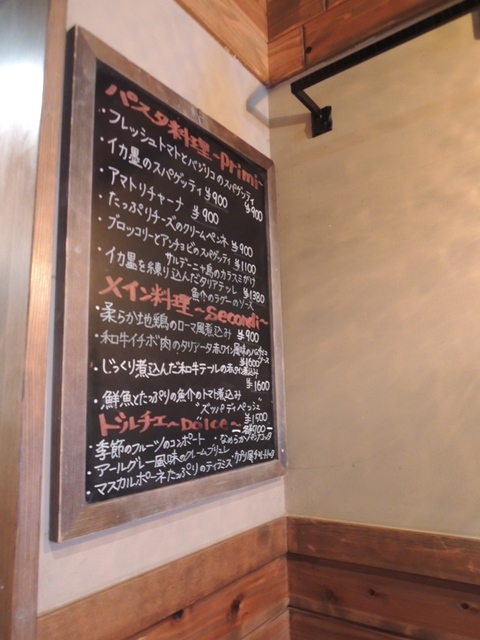 パスタ料理～Primi～
・フレッシュトマトとバジリコのスパゲッティ ¥900
・イカ墨のスパゲッティ ¥900
・アマトリチャーナ ¥900
・たっぷりチーズのクリームペンネ ¥900
・ブロッコリーとアンチョビのスパゲッティ ¥1100
サルデーニャ島のカラスミがけ
・イカ墨を練り込んだタリアテッレ ¥1380
魚介のラグーのソース
メイン料理～Secondi～
・柔らか地鶏のローマ風煮込み ¥900
・和牛イチボ肉のタリアータ赤ワイン風味のバルサミコソース
¥1600
・じっくり煮込んだ和牛テールの赤ワイン煮込み
¥1600
・鮮魚とたっぷりの魚介のトマト煮込み
"ズッパ ディ ペッシェ" ¥1500
ドルチェ～Dolce～ 各¥700
・季節のフルーツのコンポート ・なめらかパンナコッタ
・アールグレー風味のクレームブリュレ
・マスカルポーネたっぷりのティラミス ・カプリ風